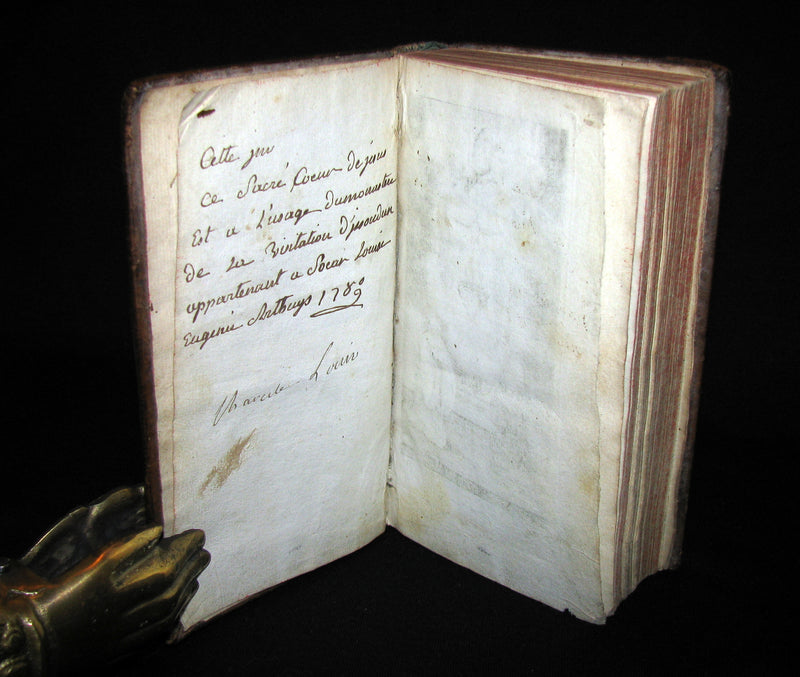 Cette
ce Sacré Coeur de jesus
Est a L'usage dumonastere
de La visitation d'issoudun
appartenant a Soeur Louise
Eugenie Arthuys 1789